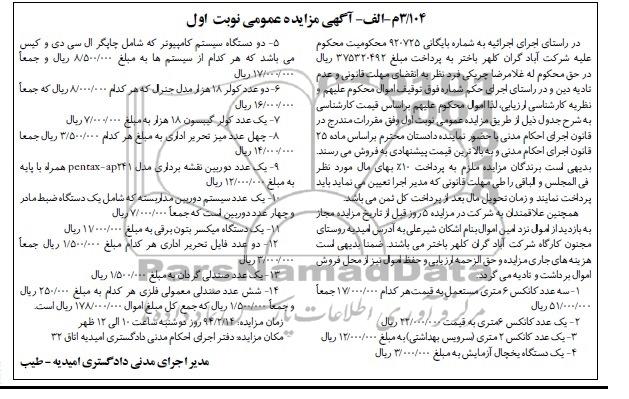 ۳/۱۰۴م-الف- آگهی مزایده عمومی نوبت اول
در راستای اجرای اجرائیه به شماره بایگانی ۹۲۰۷۲۵ محکومیت محکوم
علیه شرکت آباد گران کلهر باختر به پرداخت مبلغ ۳۷۵۳۲۰۴۹۲ ریال
در حق محکوم له غلامرضا چریکی فرد نظر به انقضای مهلت قانونی و عدم
تادیه دین و در راستای اجرای حکم شماره فوق توقیف اموال محکوم علیهم و
نظریه کارشناسی ارزیابی لذا اموال محکوم علیهم براساس قیمت کارشناسی
به شرح جدول ذیل از طریق مزایده عمومی نوبت اول وفق مقررات مندرج در
قانون اجرای احکام مدنی با حضور نماینده دادستان محترم براساس ماده ۲۵
قانون اجرای احکام مدنی و به بالاترین قیمت پیشنهادی به فروش می رسند.
بدیهی است برندگان مزایده ملزم به پرداخت ۱۰٪ بهای مال مورد نظر
فی المجلس و الباقی را طی مهلت قانونی که مدیر اجرا تعیین می نماید باید
پرداخت نمایند و زمان تحویل مال بعد از پرداخت کل ثمن می باشد.
همچنین علاقمندان به شرکت در مزایده ۵ روز قبل از تاریخ مزایده مجاز
به بازدید از اموال نزد امین اموال بنام اشکان شیرعلی به آدرس امیدیه روستای
مجنون کارگاه شرکت آباد گران کلهر باختر می باشند. ضمنا بدیهی است
هزینه های جاری مزایده و حق الزحمه ارزیابی و حفظ اموال نیز از محل فروش
اموال برداشت و تادیه می گردد.
۱- سه عدد کانکس ۶ متری مستعمل به قیمت هر کدام ۱۷/۰۰۰/۰۰۰ جمعاً
۵۱/۰۰۰/۰۰۰ ریال
۲- یک عدد کانکس ۶متری به قیمت ۲۲/۰۰۰/۰۰۰ ریال
۳- یک عدد کانکس ۲ متری (سرویس بهداشتی) به مبلغ ۱۲/۰۰۰/۰۰۰ ریال
۴- یک دستگاه یخچال آزمایش به مبلغ ۳/۰۰۰/۰۰۰ ریال
۵- دو دستگاه سیستم کامپیوتر که شامل چاپگر ال سی دی و کیس
می باشد که هر کدام از سیستم ها به مبلغ ۸/۵۰۰/۰۰۰ ریال و جمعاً
۱۷/۰۰۰/۰۰۰ ریال
۶- دو عدد کولر ۱۸ هزار مدل جنرال که هر کدام ۸/۰۰۰/۰۰۰ ریال که جمعاً
۱۶/۰۰۰/۰۰۰ ریال
۷- یک عدد کولر گیبسون ۱۸ هزار به مبلغ ۷/۰۰۰/۰۰۰ ریال
۸- چهل عدد میز تحریر اداری به مبلغ هر کدام ۳/۵۰۰/۰۰۰ ریال جمعاً
۱۴/۰۰۰/۰۰۰ ریال
۹- یک عدد دوربین نقشه برداری مدل pentax-ap۲۴۱ همراه با پایه
به مبلغ ۱۲/۰۰۰/۰۰۰ ریال
۱۰- یک عدد سیستم دوربین مداربسته که شامل یک دستگاه ضبط مادر
و چهار عدد دوربین است که جمعاً ۷/۰۰۰/۰۰۰ ریال
۱۱- یک دستگاه میکسر بتون برقی به مبلغ ۱۱/۰۰۰/۰۰۰ ریال
۱۲- دو عدد فایل تحریر اداری هر کدام مبلغ ۱/۵۰۰/۰۰۰ ریال جمعاً
۳/۰۰۰/۰۰۰ ریال
۱۳- یک عدد صندلی گردان به مبلغ ۱/۵۰۰/۰۰۰ ریال
۱۴- شش عدد صندلی معمولی فلزی هر کدام به مبلغ ۲۵۰/۰۰۰ ریال
و جمعاً ۱/۵۰۰/۰۰۰ ریال که جمع کل مبلغ اموال ۱۷۸/۰۰۰/۰۰۰ ریال است.
زمان مزایده: ۹۴/۲/۱۴ روز دوشنبه ساعت ۱۰ الی ۱۲ ظهر
مکان مزایده: دفتر اجرای احکام مدنی دادگستری امیدیه اتاق ۳۲
مدیر اجرای مدنی دادگستری امیدیه - طیب